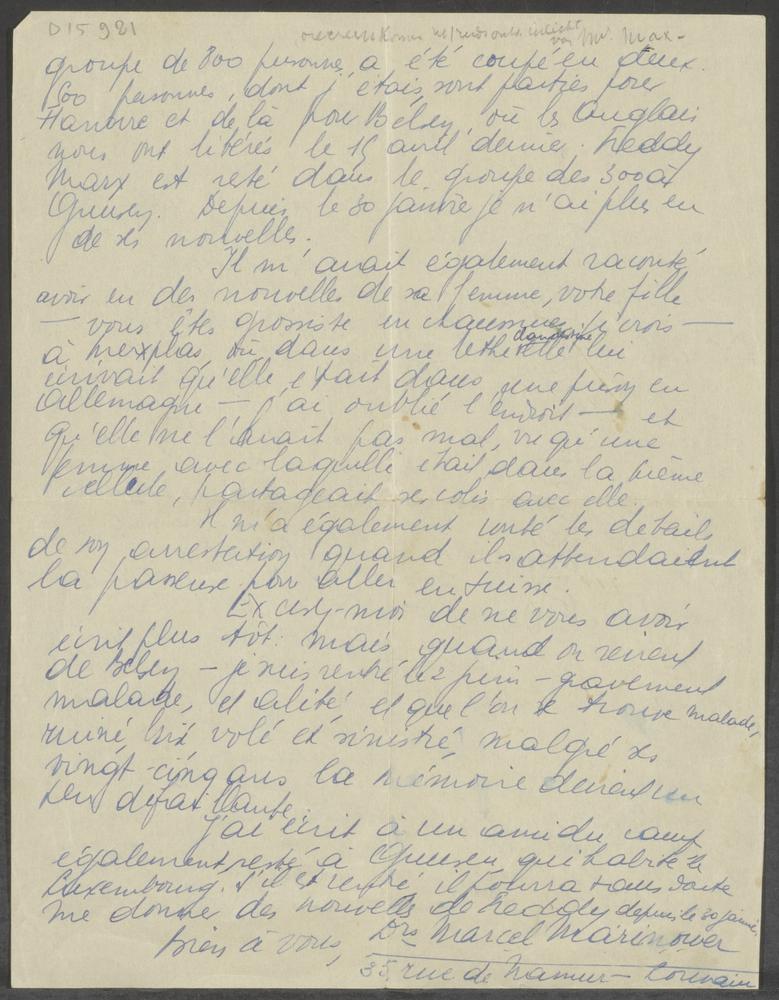 D15921
Mr. Marx -
groupe de 800 personne, a été coupé en deux.
500 personnes, dont j'étais, sont parties pour
Hanovre et de là pour Belsen, où les Anglais
nous ont libérés le 15 avril dernier. Freddy
Marx est resté dans le groupe des 300 à
Gunsen. Depuis le 30 janvie je n'ai plus eu
de ses nouvelles.
Il m'avait également raconté
avoir eu des nouvelles de sa femme, votre fille
— vous êtes grossiste en chaussures, je crois —
à Merxplas, où, dans une lettre clandestine elle lui
écrivait qu'elle était dans une prison en
Allemagne — j'ai oublié l'endroit — et
qu'elle ne l'avait pas mal, vu qu'une
femme avec laquelle était dans la même
cellule, partageait ses colis avec elle.
Il m'a également conté les details
de son arrestation quand ils attendaient
la passeuse pour aller en Suisse.
Excusez-moi de ne vous avoir
écrit plus tôt: mais quand on revient
de Belsen - je suis rentré le 2 juin - gravement
malade, et alité, et que l'on se trouve malade,
ruiné, volé et sinistré, malgré ses
vingt-cinq ans la mémoire devient un
peu défaillante.
J'ai écrit à un ami du camp
également resté à Gunsen, qui habite le
Luxembourg. S'il est rentré, il pourra sans doute
me donner des nouvelles de Freddy depuis le 30 janvier
Bien à vous, Drs Marcel Marinower
35, rue de Namur - Louvain